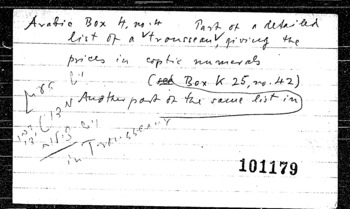 Arabic Box 4, no. 4 Part of a detailed
list of a "trousseau", giving the
prices in coptic numerals
(Box K 25, no. 42)
Another part of the same list in
in Trousseau
101179